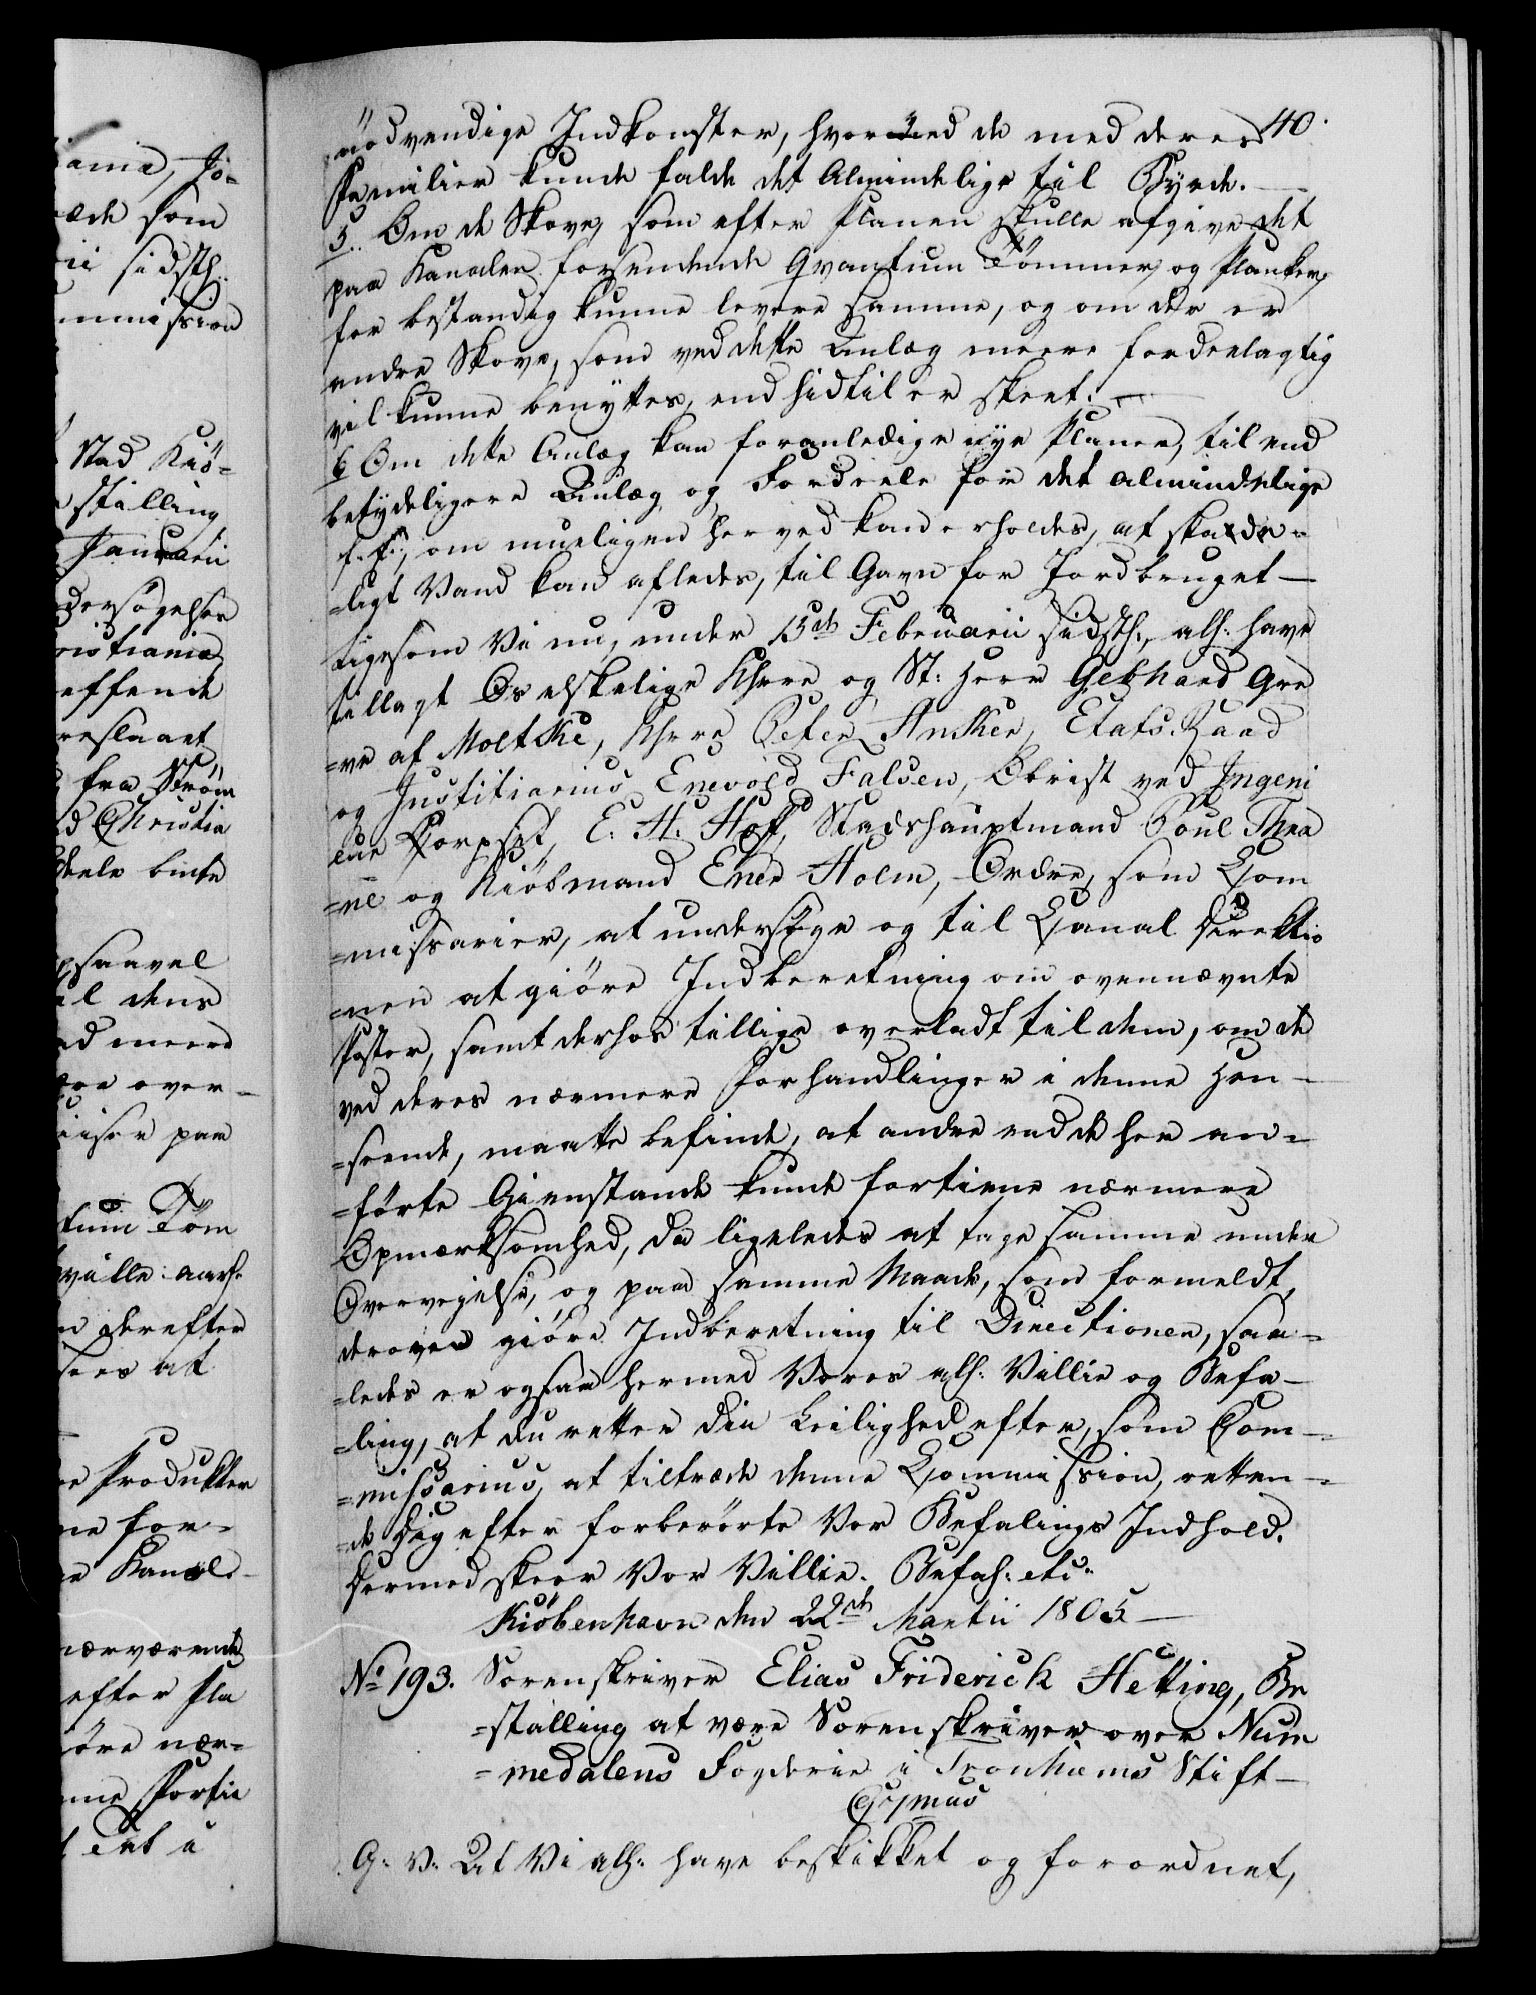 40.
nödvendige Indkomster, hvorved de med deres
Familier kunde falde det Almindelige til Byrde. —
5. Om de Skove, som efter Planen skulle afgive det
paa Kanalen forsendende Qvantum Tömmer og Planker,
for bestandig kunne levere samme, og om der er
andre Skove, som ved dette Anlæg meere fordeelagtig
vil kunne benyttes, end hidtil er skeet. —
6 Om dette Anlæg kan foranledige nye Planer, til end
betydeligere Anlæg og Fordeele for det almindelige
f. Ex., om mueligen herved kan erholdes, at skade-
=ligt Vand kan afledes, til Gavn for Jordbruget —
ligesom Vi nu, under 15de Februarii sidsth., alh: have
tillagt Os elskelige Hherre og St: Herr Gebhard Gre
=ve af Moltke, Hherre Peter Anker, Etats-Raad
og Justitiarius Enevold Falsen, Obrist ved Ingeni
eur Korpset, E. H. Hoff, Stadshauptmand Poul Thra
=ne og Kiöbmand Ener Holm, Ordre, som Com
=missarier, at undersöge og til Canal Direktio
=nen at giöre Indberetning om ovennævnte
Poster, samt derhos tillige overladt til dem, om de
ved deres nærmere Forhandlinger i denne Hen-
=seende, maatte befinde, at andre end de her an-
=förte Gienstande kunde fortiene nærmere
Opmærksomhed, da ligeledes at tage samme under
Overvejelse, og paa samme Maade, som formeldt,
derover giöre Indberetning til Directionen, saa-
=ledes er ogsaa hermed Vores alh: Villie og Befa-
=ling, at du retter din Leilighed efter, som Com-
=missarius, at tiltræde denne Commission, retten-
=de Dig efter forberörte Vor Befalings Indhold.
Dermed skeer Vor Villie. Befal: etc:
Kiöbenhavn den 22de Martii 1805 —
No 193. Sorenskriver Elias Friderich Hetting, Be
=stalling at være Sorenskriver over Num
=medalens Fogderie i Tronhiems Stift —
G: V: At Vi alh: have beskikket og forordnet,